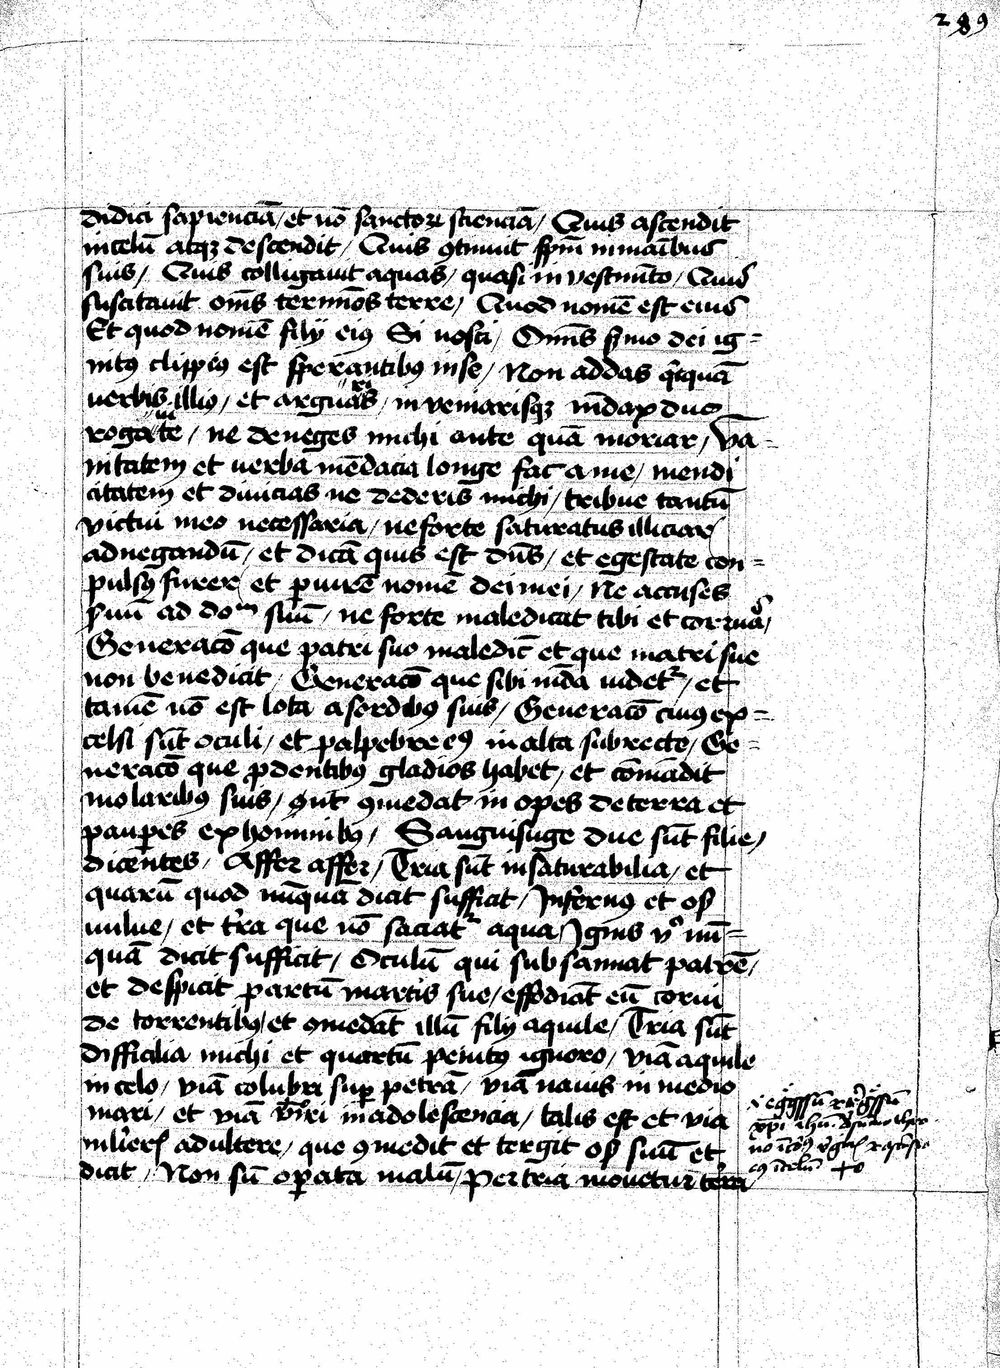 289
didici sapienciā / et nō sanctoꝝ scienciā / Quis ascendit
in celū atqꝫ descendit / Quis ꝯtinuit sp̄m in manibus
suis / Quis colligauit aquas / quasi in vestimēto / Quis
suscitauit om̄s termīos terre / Quod nomē est eius
Et quod nomē filij eiꝰ Si nosti / Omīs s̄mo dei ig=
nitꝰ clippeꝰ est sperantibꝰ in se / Non addas q̄cquā
verbis illiꝰ / et arguaris / inveniarisqꝫ mēdax duo
rogaui te / ne deneges michi ante quā moriar / va=
nitatem et uerba mēdacia longe fac a me / mendi
citatem et diuicias ne dederis michi / tribue tantū
victui meo necessaria / ne forte saturatus illiciar
ad negandū / et dicā quis est dn̄s / et egestate con=
pulsꝰ furer / et ꝑiurē nomē dei mei / Ne accuses
s̄uū ad doᵐ suū / ne forte maledicat tibi et corruas /
Generacō que patri suo maledic̄ et que matri sue
non benedicit / Generacō que sibi mūda videtᷣ / et
tamē nō est lota a sordibꝰ suis / Generacō cuiꝰ ex=
celsi sūt oculi / et palpebre eiꝰ in alta subrecte / Ge=
neracō que ꝓ dentibꝰ gladios habet / et cōmādit
molaribꝰ suis / ꝯmedat inopes de terra et
pauꝑes ex hominibꝰ / Sanguisuge due sūt filie /
dicentes / Affer affer / Tria sūt insaturabilia / et
quartū quod nūquā dicit sufficit / Infernꝰ et os
uulue / et tr̄a que nō saciatᷣ aqua / Ignis v̊ nū=
quā dicit sufficit / Oculū qui subsannat patrē /
et despicit partū martis sue / effodiāt eū corui
de torrentibꝰ / et ꝯmedāt illū filij aquile / Tria sūt
difficilia michi et quartū penitꝰ ignoro / viā aquile
in celo / viā colubri suꝑ petrā / viā nauis in medio
mari / et viā viri in adolescencia / talis est et via
mulieris adultere / que ꝯmedit et tergit os suū et
dicit / Non sū oꝑata malū / Per tria mouetur terra